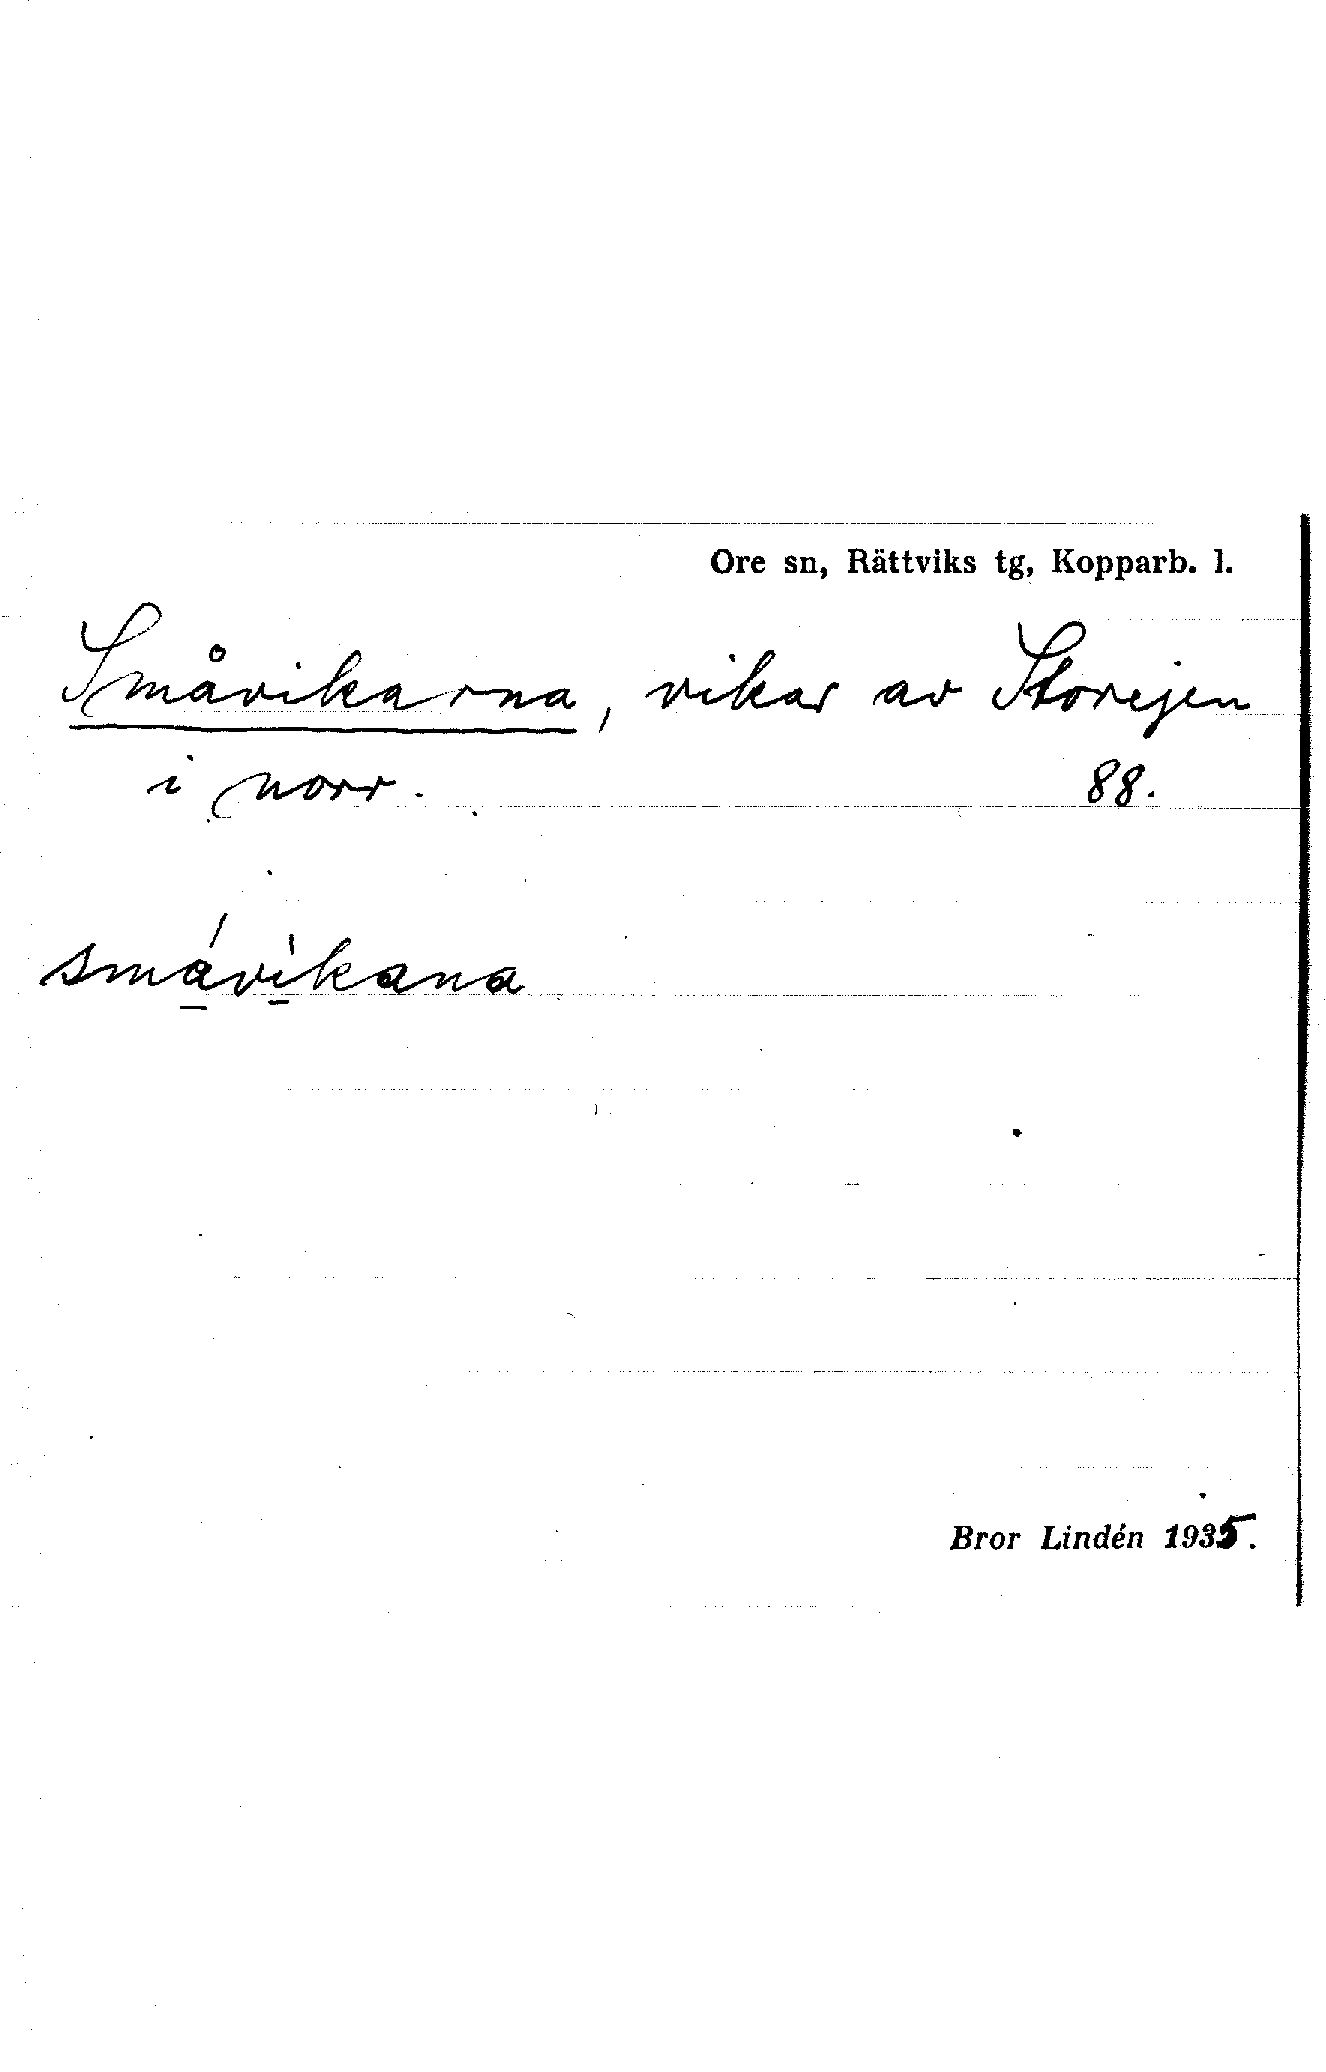 Ore sn, Rättviks tg, Kopparb. l.
Småvikarna, vikar av Storejen
i norr. 88.
smávìkana
Bror Lindén 1935.